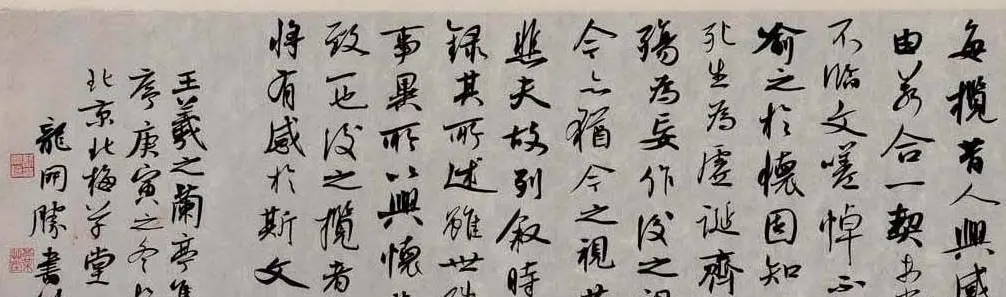 每攬昔人興感
由若合一契未
不臨文嗟悼不
喻之於懷固知
死生為虛誕齊
殤為妄作後之
今亦猶今之視
悲夫故列敘時
錄其所述雖世殊
事異所以興懷
致一也後之攬者
將有感於斯文
王羲之蘭亭集
序庚寅之冬於
北京北梅草堂
龍開勝書